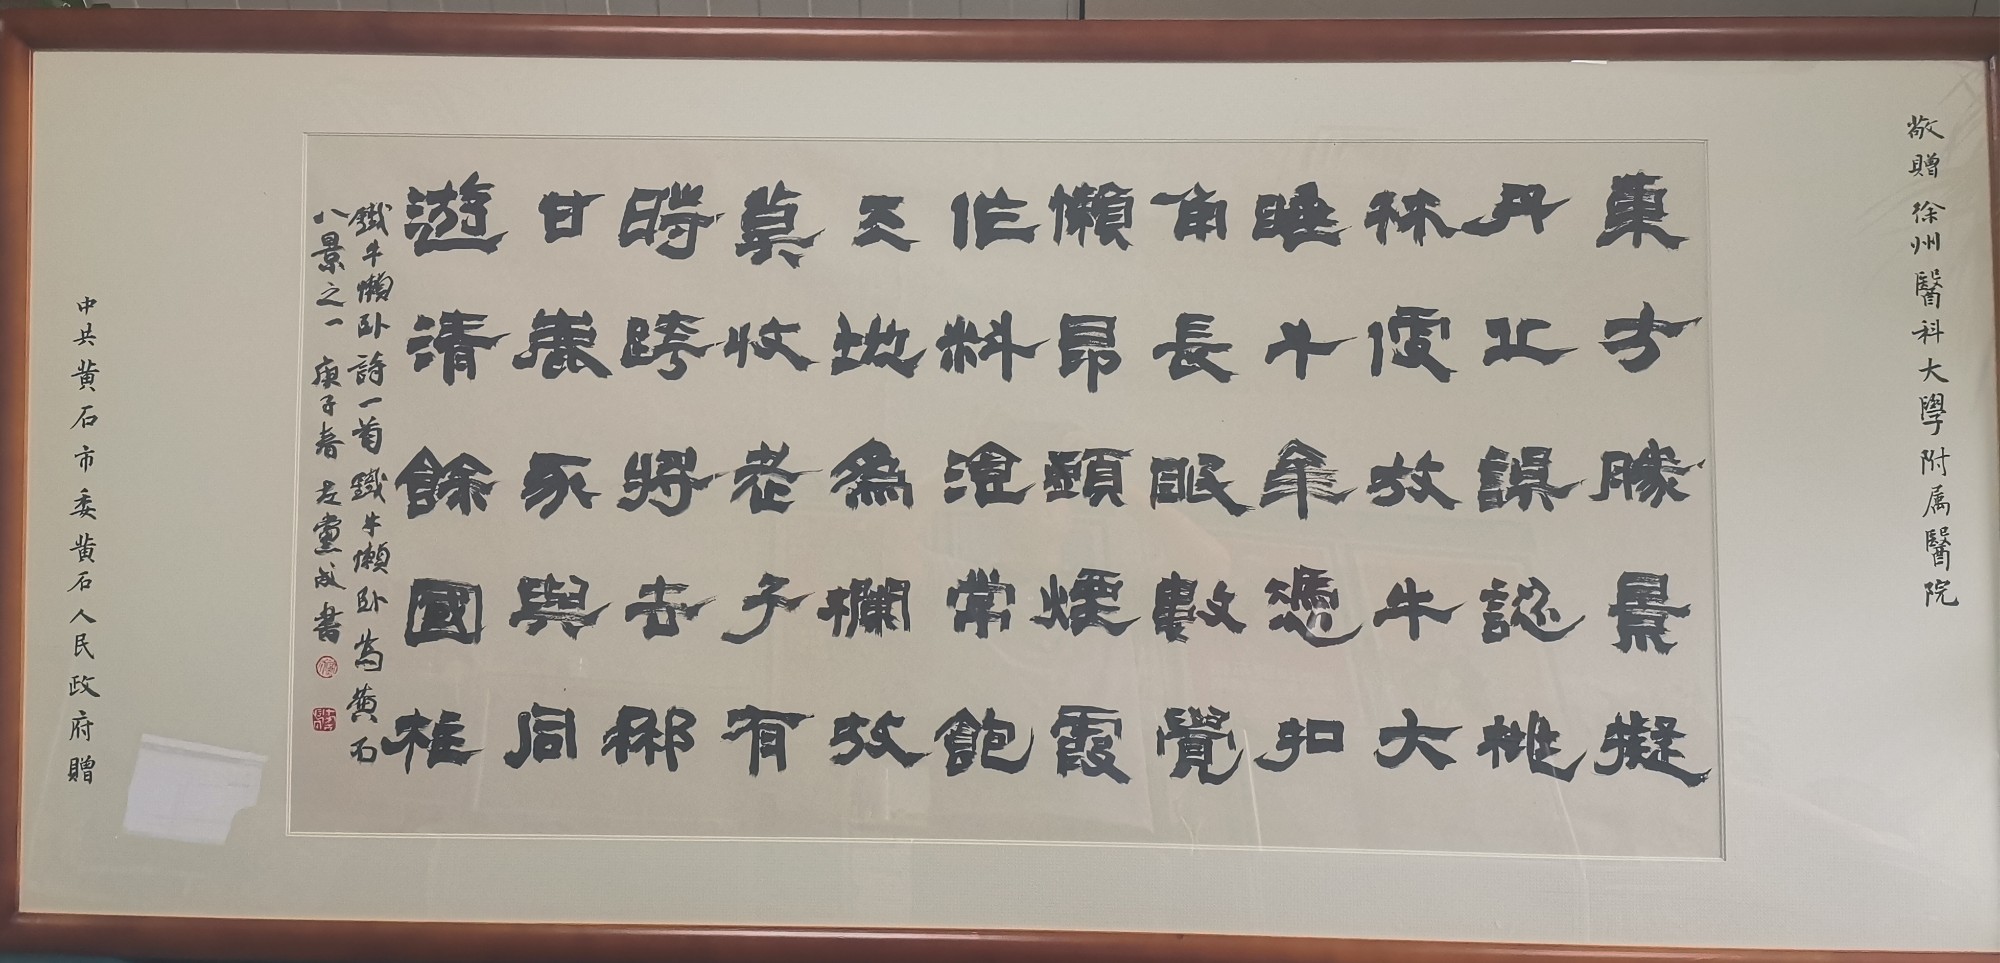 敬贈徐州醫科大學附属醫院
東方勝景擬
丹丘誤認桃
林處放牛大
睡牟憑扣
角長眠數覺
懶昂頭煙霞
作料湌常飽
天地為欄放
莫收老子有
時跨將去那
甘鹿豕與同
遊清餘國柱
鐵牛懶卧詩一首 鐵牛懶卧為黃石
八景之一 庚子春 黨成書
中共黄石市委黄石人民政府贈